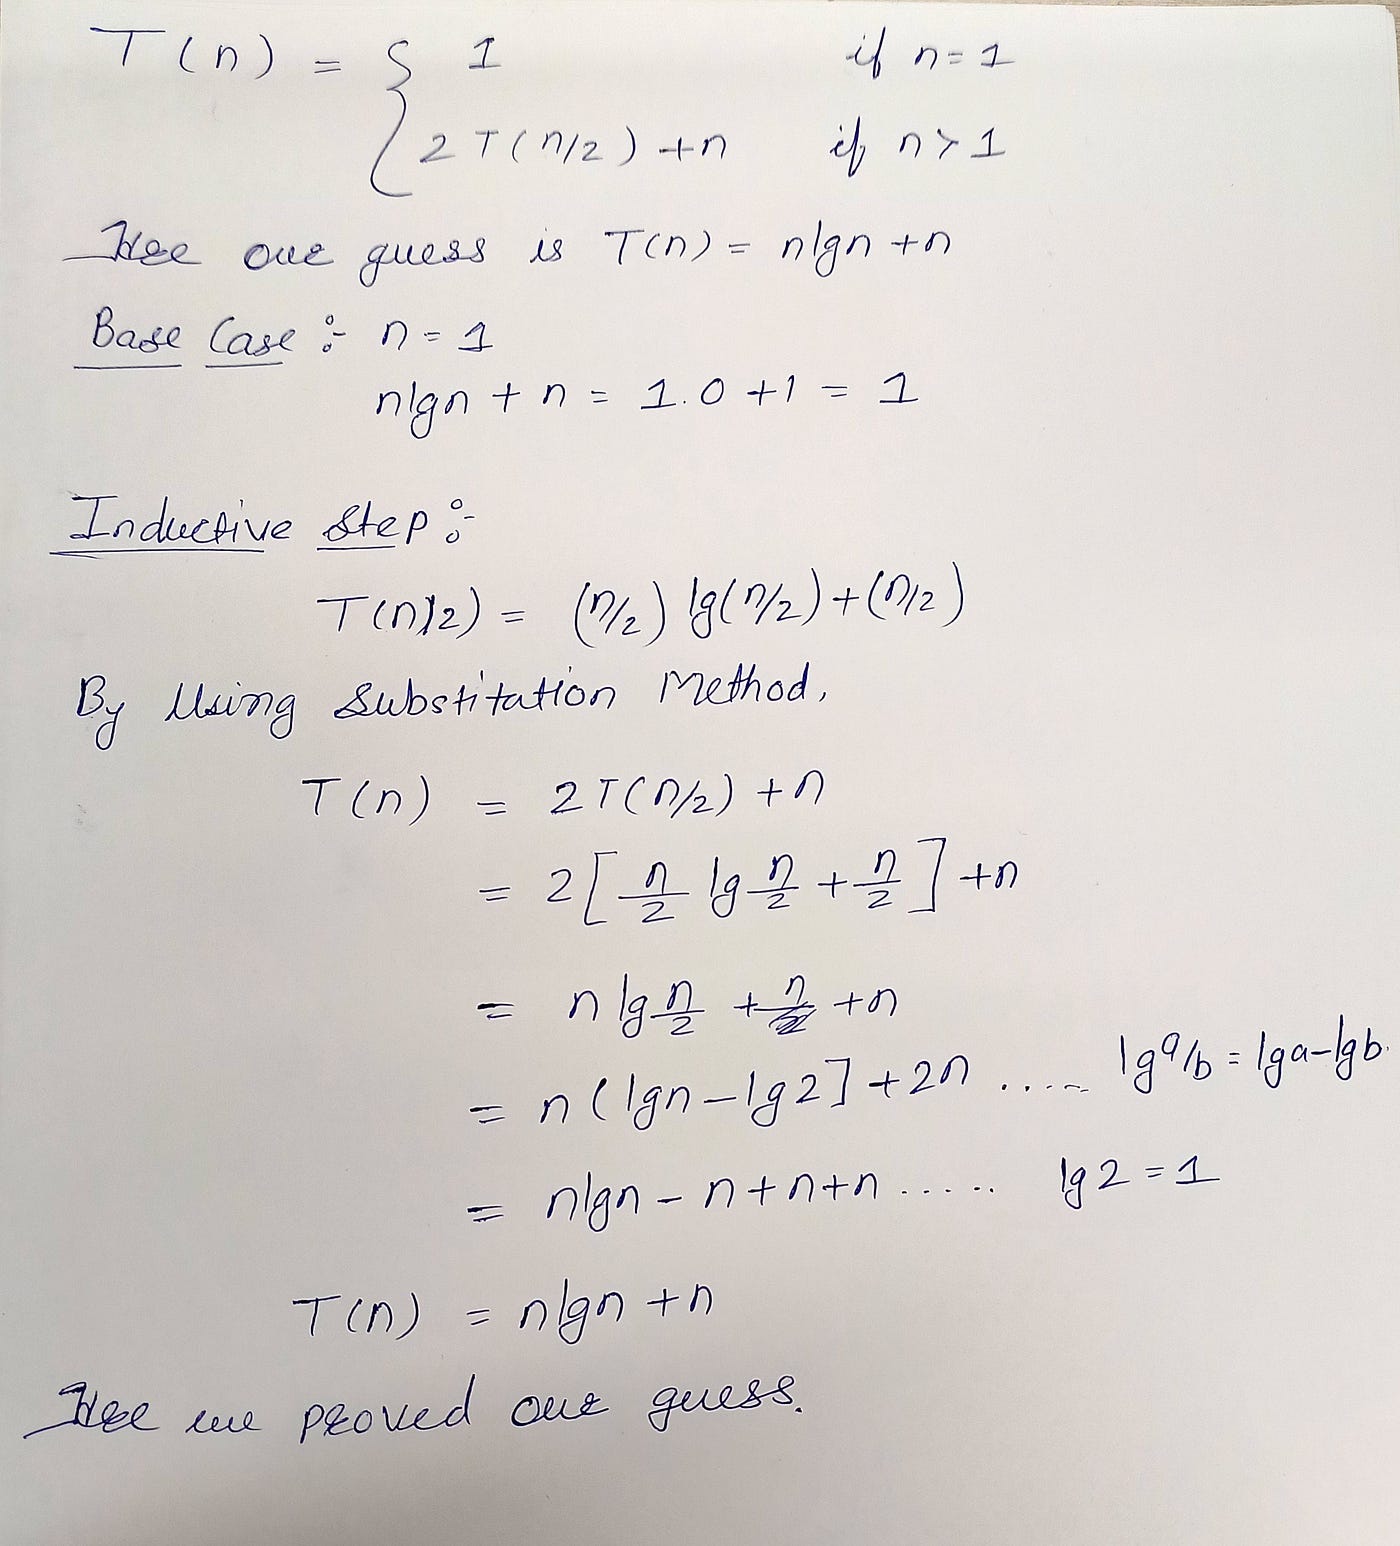 T(n) = { 1 if n=1
2T(n/2)+n if n>1
Hee our guess is T(n) = nlgn+n
Base Case :- n=1
nlgn + n = 1.0+1 = 1
Inductive Step :-
T(n/2) = (n/2) lg(n/2)+(n/2)
By Using Substitation Method,
T(n) = 2T(n/2)+n
= 2[n/2 lg n/2 + n/2]+n
= n lg n/2 + n +n
= n(lgn-lg2]+2n ..... lg a/b = lga-lgb.
= nlgn-n+n+n ..... lg2=1
T(n) = nlgn+n
Hee we proved our guess.